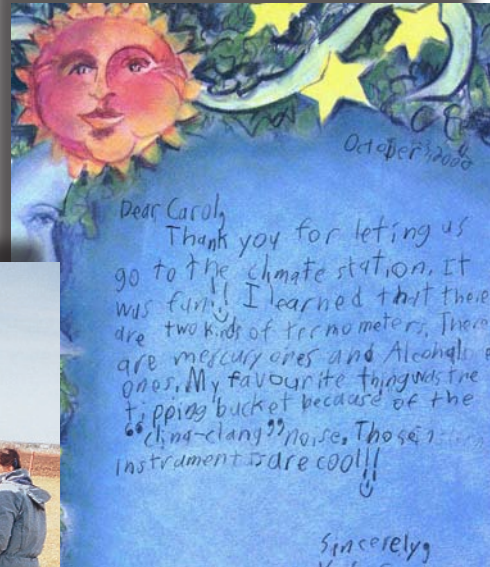 October 3, 2000
Dear Carol,
Thank you for leting us
go to the climate station. It
was fun!! I learned that there
are two kinds of termometers. There
are mercury ones and Alcohol
ones. My favourite thing was the
tipping bucket because of the
"cling-clang" noise. Those
instruments are cool!!
Sincerely,